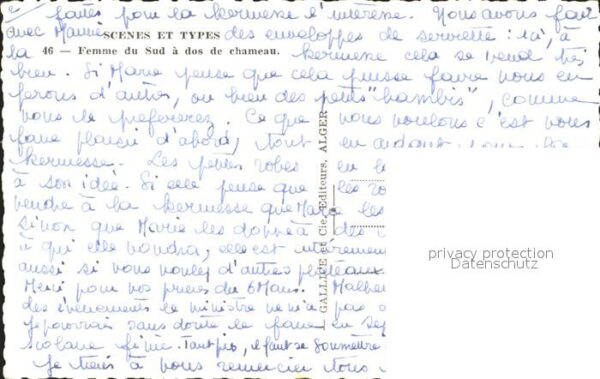 faites pour la kermesse t'intéresse. Nous avons fait
avec Mamie des enveloppes de serviette : ici, à
SCENES ET TYPES
la kermesse cela se vend très
46 — Femme du Sud à dos de chameau.
bien. Si Marie pense que cela puisse faire nous en
ferons d'autres, ou bien des petits "bambis", comme
vous le préférerez. Ce que nous voulons c'est vous
faire plaisir d'abord, tout en aidant pour la
kermesse. Les petites robes en
à son idée. Si elle pense que les ro
vendre à la kermesse que Marie les
sinon que Marie les donne à des
à qui elle voudra, elle est entièrement
aussi si vous voulez d'autres plateaux.
Merci pour vos prières du 6 Mars. Malheu
des évènements le ministre ne m'a pas
Je pourrais sans doute le faire en Sep
scolaire finie. Tant pis, il faut se soumettre
Je tiens à vous remercier tous
L. GALLICE et Cie, Editeurs, ALGER
privacy protection
Datenschutz